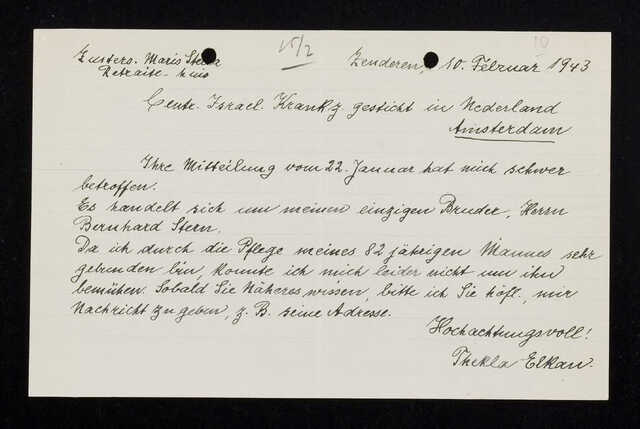 15/2
10
Zusters. Maris Stella
Retraite-huis
Zenderen, 10. Februar 1943
Centr. Israel. Krankz. gesticht in Nederland
Amsterdam
Ihre Mitteilung vom 22. Januar hat mich schwer
betroffen.
Es handelt sich um meinen einzigen Bruder, Herrn
Bernhard Stern.
Da ich durch die Pflege meines 82 jährigen Mannes sehr
gebunden bin, konnte ich mich leider nicht um ihn
bemühen. Sobald Sie Näheres wissen, bitte ich Sie höfl., mir
Nachricht zu geben, z. B. seine Adresse.
Hochachtungsvoll!
Thekla Elkan.